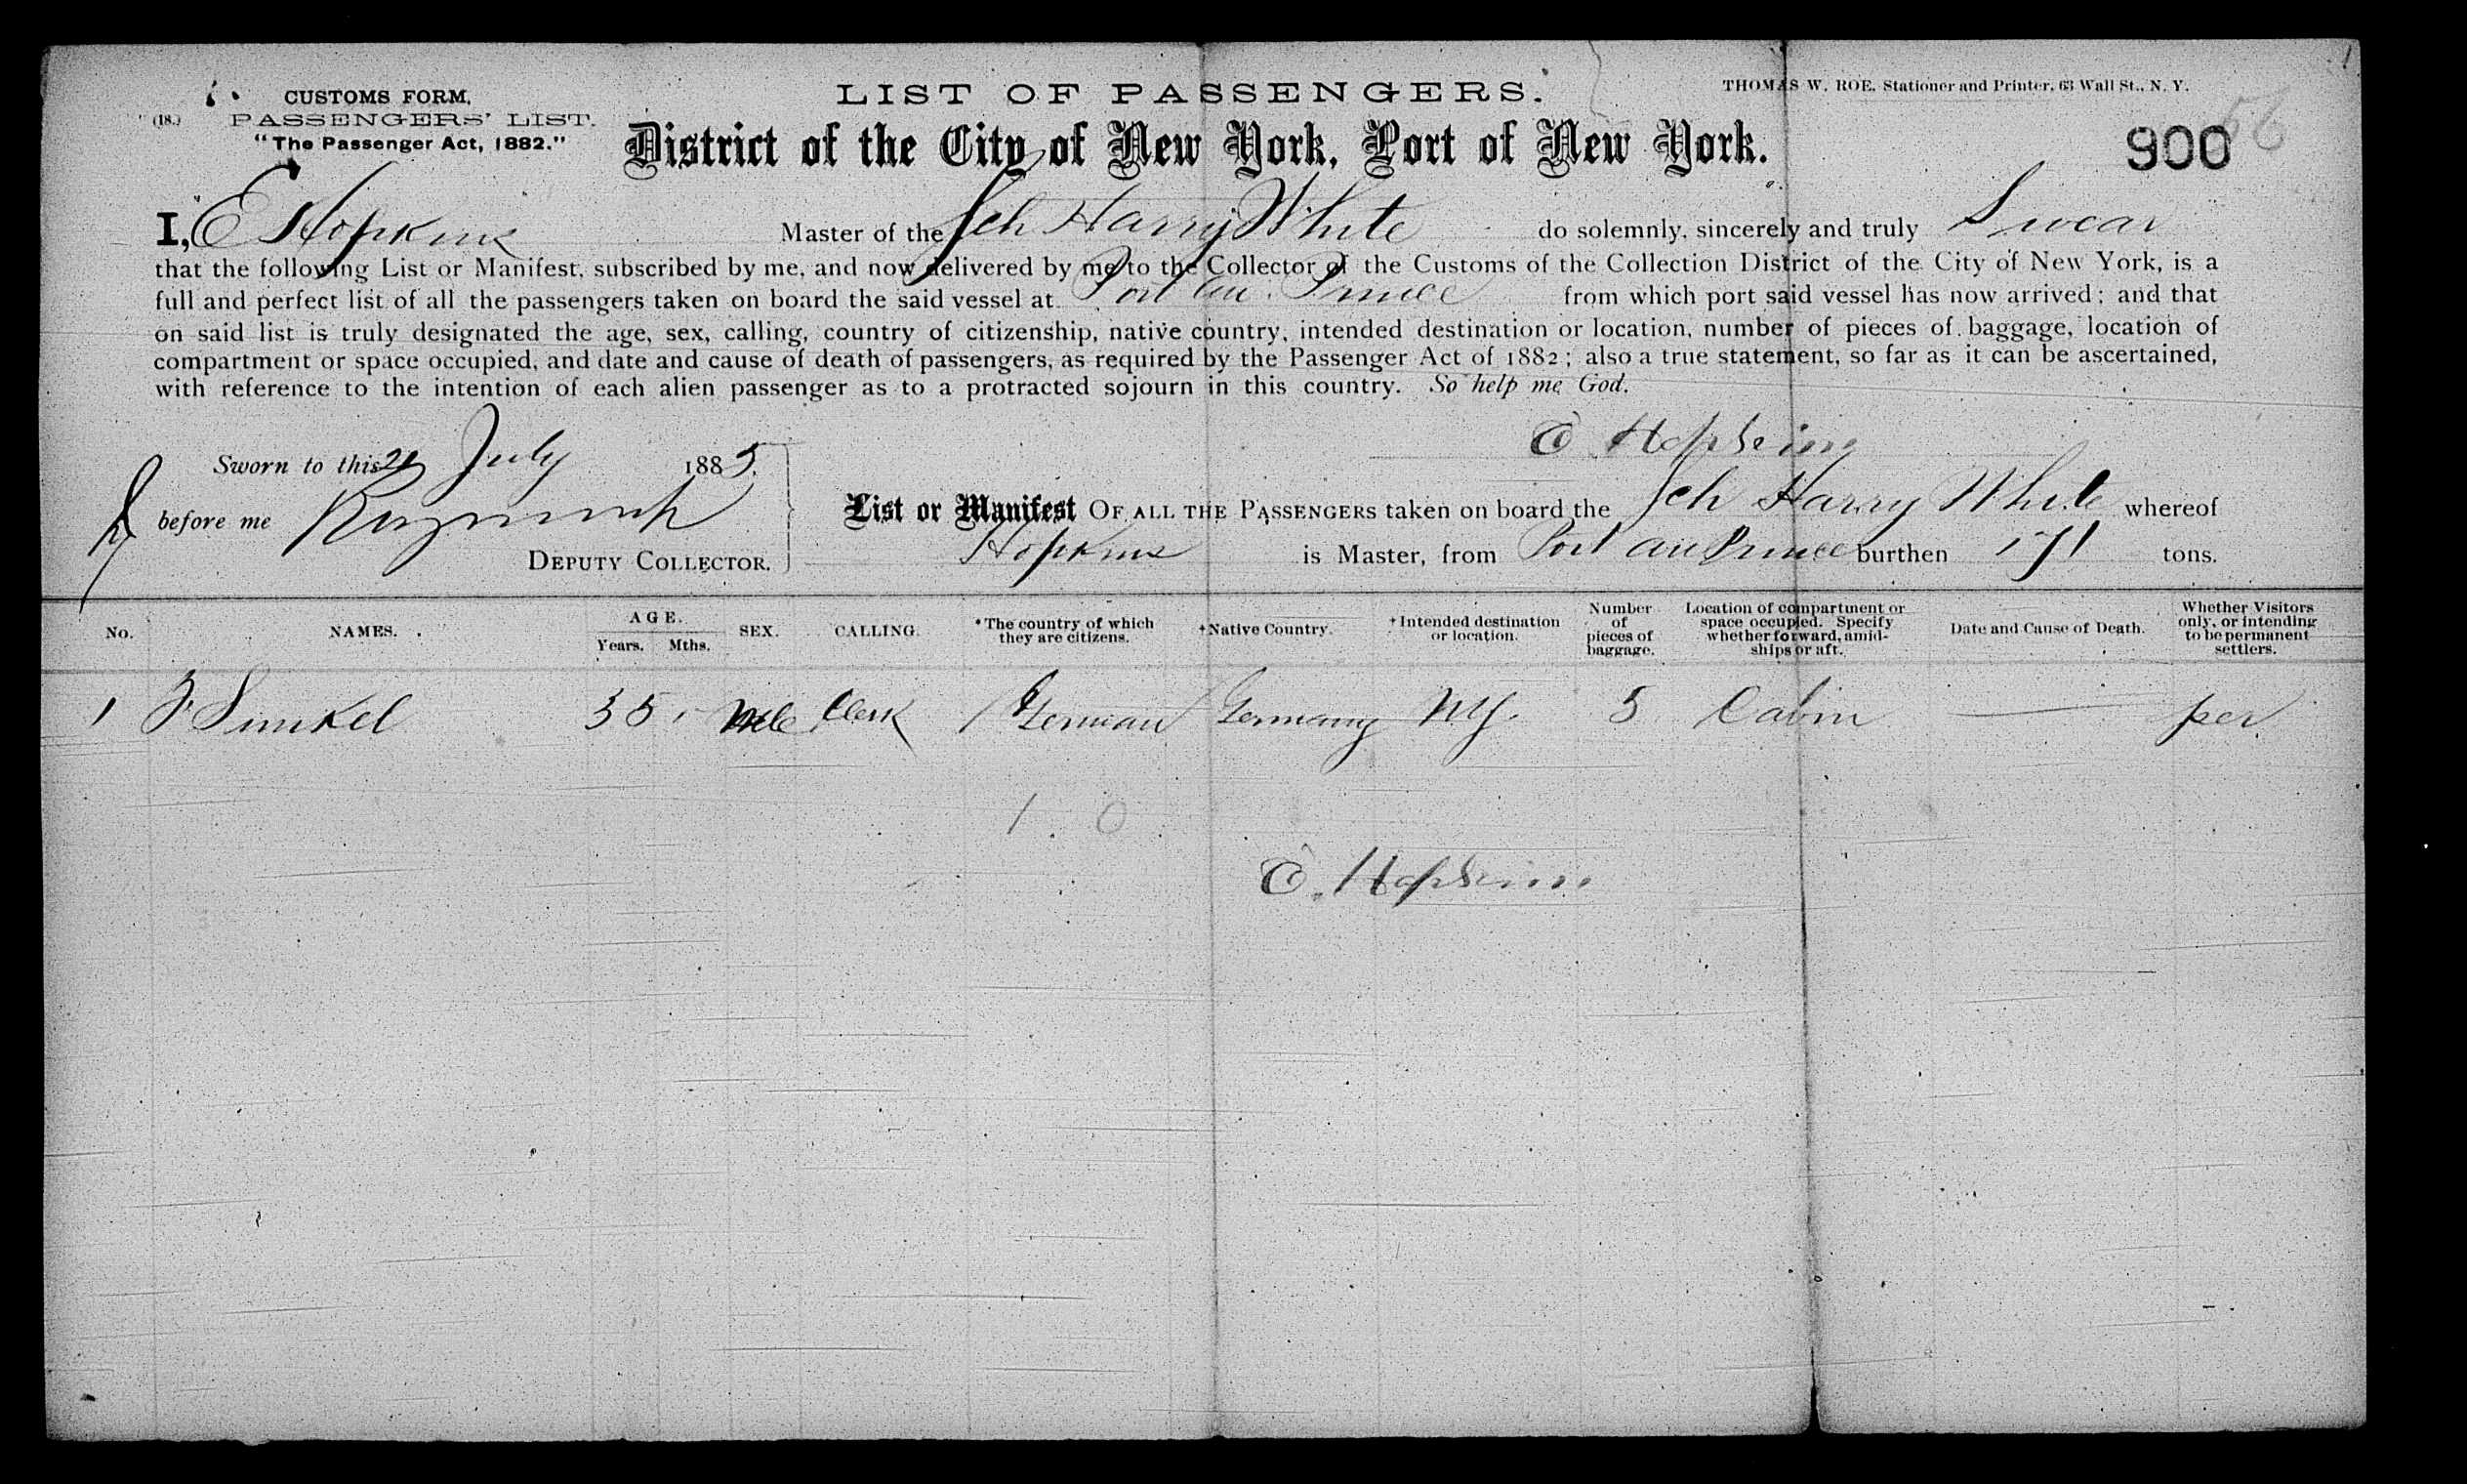 CUSTOMS FORM,
(18.) PASSENGERS' LIST.
"The Passenger Act, 1882."
LIST OF PASSENGERS.
THOMAS W. ROE, Stationer and Printer, 63 Wall St., N. Y.
District of the City of New York, Port of New York.
900
I, E Hopkins Master of the Sch Harry White do solemnly, sincerely and truly Swear
that the following List or Manifest, subscribed by me, and now delivered by me to the Collector of the Customs of the Collection District of the City of New York, is a
full and perfect list of all the passengers taken on board the said vessel at Port au Prince from which port said vessel has now arrived; and that
on said list is truly designated the age, sex, calling, country of citizenship, native country, intended destination or location, number of pieces of baggage, location of
compartment or space occupied, and date and cause of death of passengers, as required by the Passenger Act of 1882; also a true statement, so far as it can be ascertained,
with reference to the intention of each alien passenger as to a protracted sojourn in this country. So help me God.
E Hopkins
Sworn to this 21 July 1885.
before me
DEPUTY COLLECTOR.
List or Manifest OF ALL THE PASSENGERS taken on board the Sch Harry White whereof
Hopkins is Master, from Port au Prince burthen 171 tons.
No. NAMES. AGE. Years. Mths. SEX. CALLING. *The country of which they are citizens. †Native Country. †Intended destination or location. Number of pieces of baggage. Location of compartment or space occupied. Specify whether forward, amidships or aft. Date and Cause of Death. Whether Visitors only, or intending to be permanent settlers.
1 Simkel 35 Male Clerk German Germany NY. 5 Cabin — per
1. 0
E. Hopkins